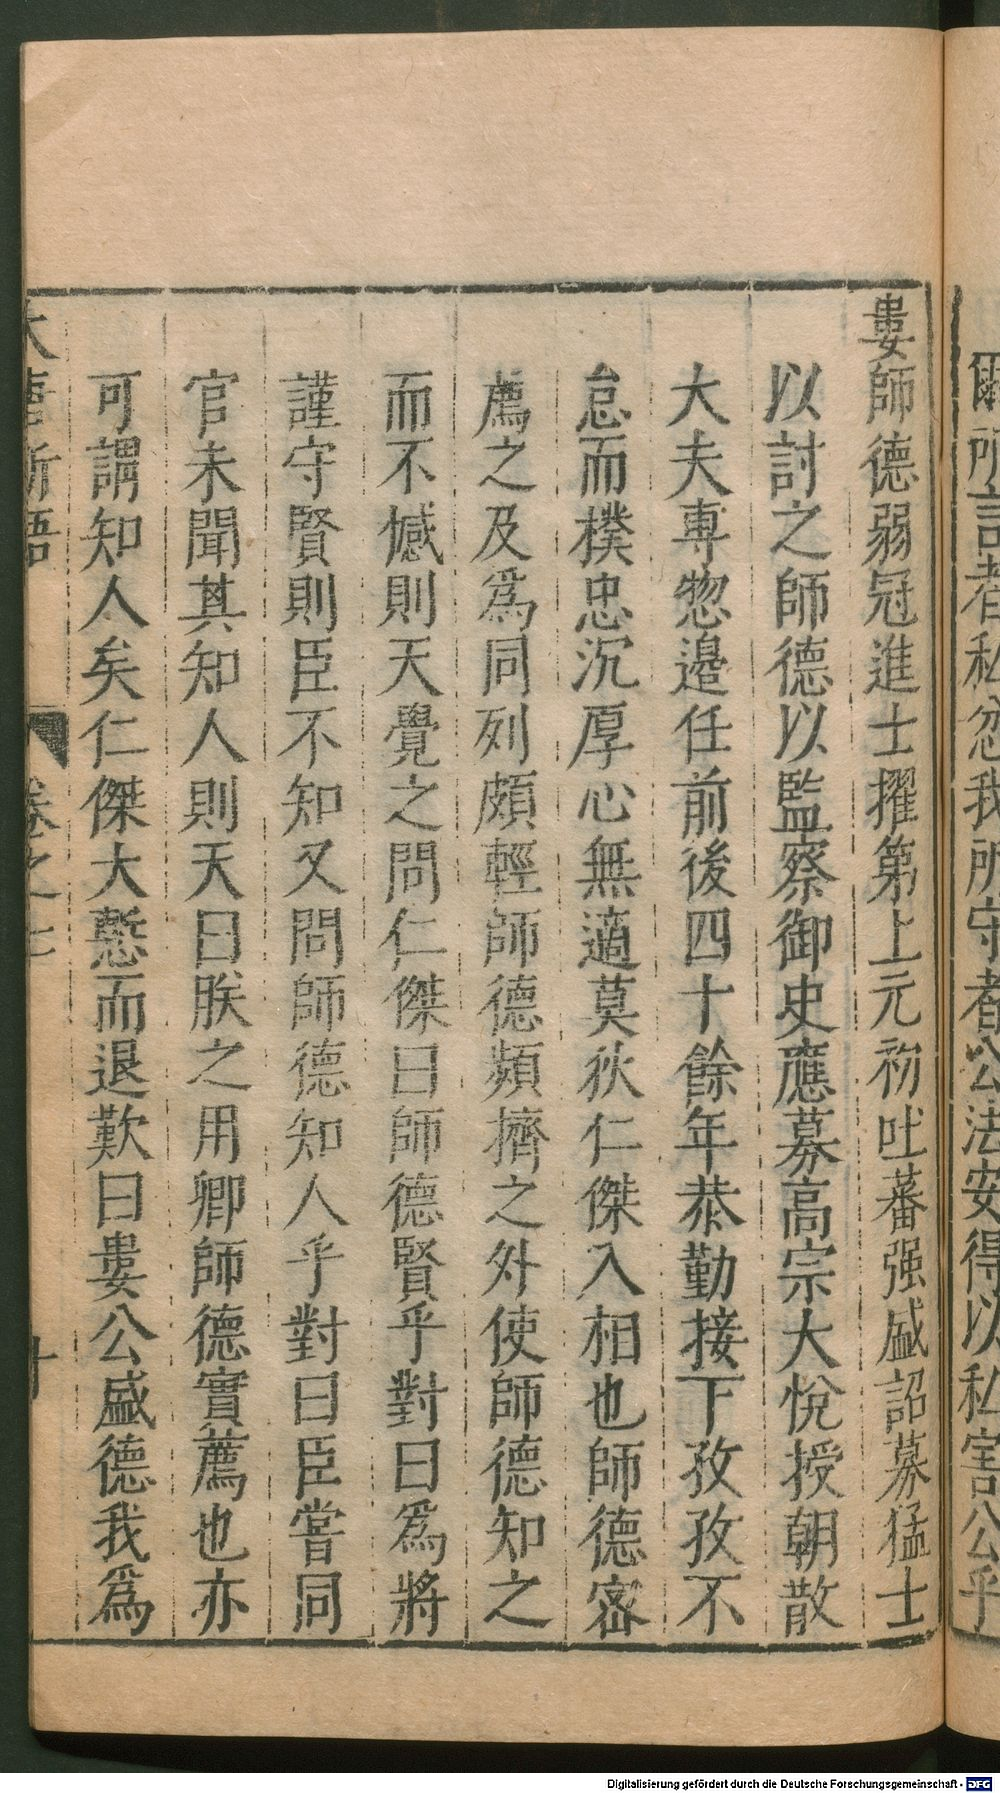 爾所言者私忽我所守者公法安得以私害公乎
婁師德弱冠進士擢第上元初吐蕃强盛詔募猛士
以討之師德以監察御史應募高宗大悅授朝散
大夫專惣邊任前後四十餘年恭勤接下孜孜不
怠而樸忠沉厚心無適莫狄仁傑入相也師德密
薦之及爲同列頗輕師德頻擠之外使師德知之
而不憾則天覺之問仁傑曰師德賢乎對曰爲將
謹守賢則臣不知又問師德知人乎對曰臣嘗同
官未聞其知人則天曰朕之用卿師德實薦也亦
可謂知人矣仁傑大慙而退歎曰婁公盛德我爲
大唐新語 卷之七 十
Digitalisierung gefördert durch die Deutsche Forschungsgemeinschaft - DFG